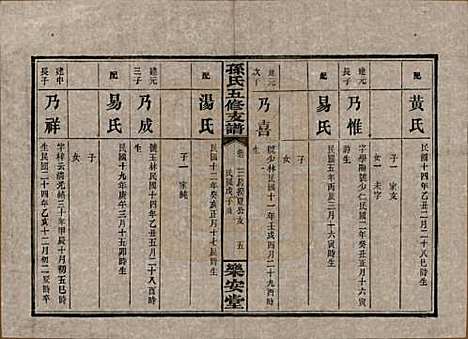 配
黃氏
民國十四年乙丑二月二十八巳時生
子一 家支
女一 未字
建元
長子
乃惟
字學陽號少仁民國二年癸丑正月十六寅
時生
配
易氏
民國五年丙辰三月十六寅時生
子
女
建元
次子
乃喜
號少林民國十一年壬戌四月二十九酉時
生
孫氏五修支譜
民國戊子歲
五
樂安堂
配
湯氏
民國十二年癸亥八月十七辰時生
子一 家純
建元
三子
乃成
號玉林民國十四年乙丑五月二十八日時
生
配
易氏
民國十九年庚午三月十五卯時生
子
女
建中
長子
乃祥
字梓云清光緒三十年甲辰十月初五巳時
生民國二十四年乙亥十二月初二辰時卒